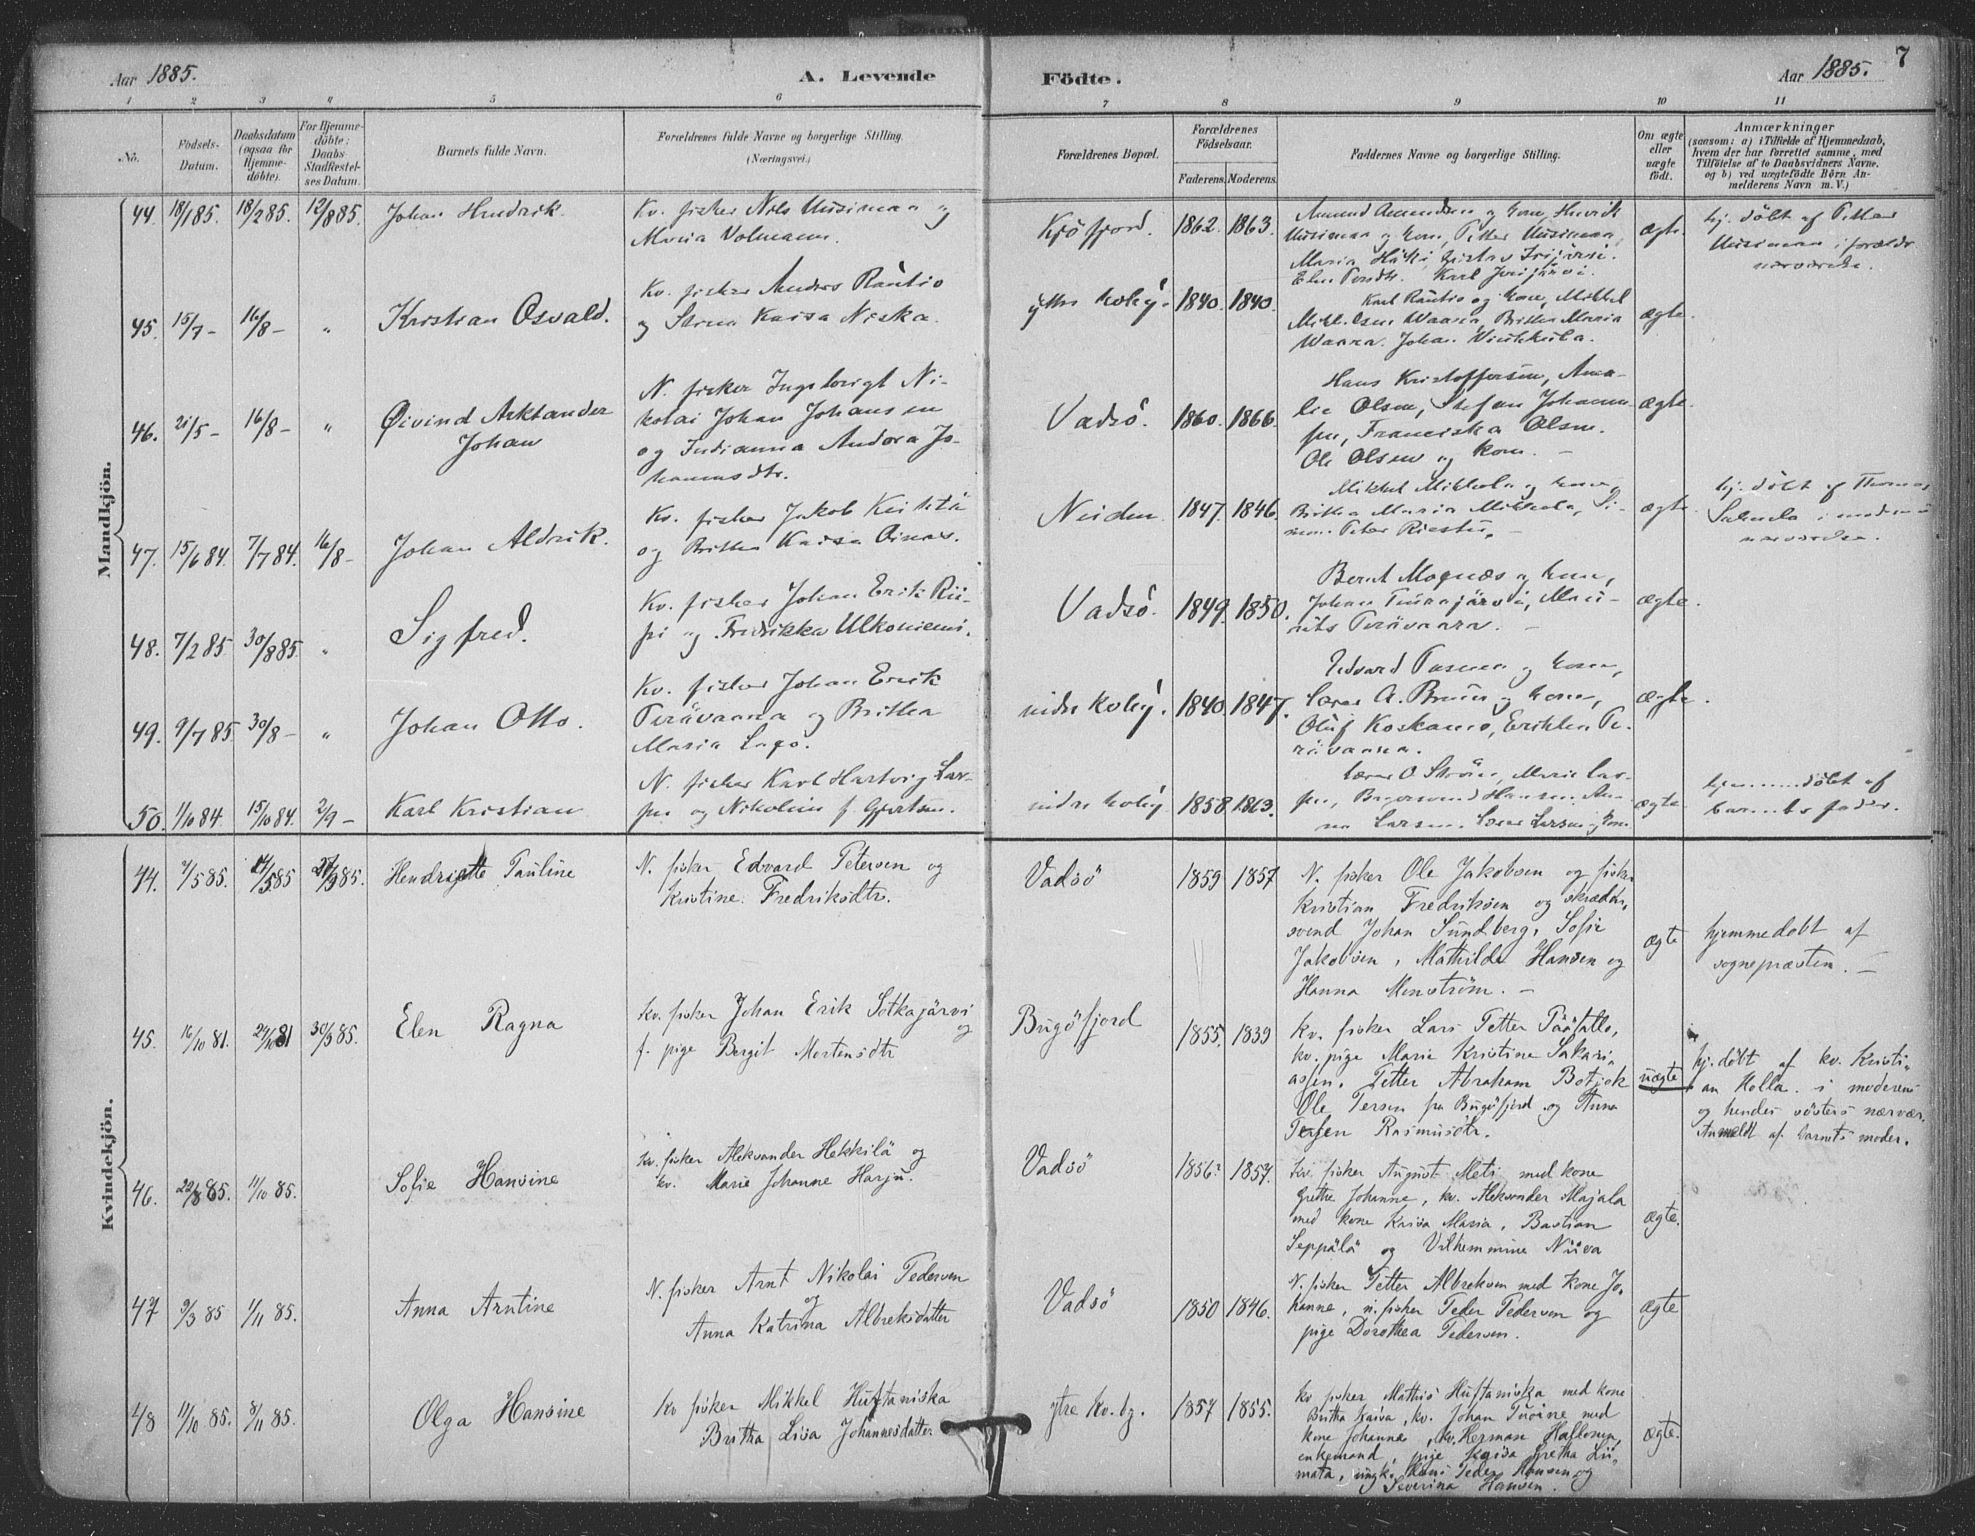 Aar 1885.
A. Levende
Födte.
Aar 1885.
7
1 2 3 4 5 6 7 8 9 10 11
No.
Födsels-
Datum.
Daabsdatum
(ogsaa for
Hjemme-
döbte).
For Hjemme-
döbte:
Daabs-
Stadfestel-
ses Datum.
Barnets fulde Navn.
Forældrenes fulde Navne og borgerlige Stilling.
(Næringsvei.)
Forældrenes Bopæl.
Forældrenes
Födselsaar.
Faderens. Moderens.
Faddernes Navne og borgerlige Stilling.
Om ægte
eller
uægte
födt.
Anmærkninger
(saasom: a) i Tilfælde af Hjemmedaab,
hvem der har forrettet samme, med
Tilföielse af to Daabsvidners Navne,
og b) ved uægtefödte Börn An-
melderens Navn m. V.)
Mandkjön.
44. 18/1 85. 18/2 85. 12/8 85. Johan Hendrik
Kv. fisker Nils Uusimaa og
Maria Volmann.
Kjöfjord. 1862. 1863.
Amund Amundsen og kone, Henrik
Uusimaa og kone, Petter Uusimaa,
ægte.
hj. döbt af Petter
Uusimaa i forældr.
nærværelse.
45. 15/7 - 16/8 - " Kristian Osvald.
Kv. fisker Anders Rautio
og Stina Kaisa Niska.
1840. 1840.
Karl Rautio og kone, Mikkel
Waara, Britha Maria
Waara. Johan
ægte.
46. 21/5 - 16/8 - " Øivind Arktander
Johan
N. fisker Ingebrigt Ni-
kolai Johan Johansen
og Indianna Andora Jo-
hannesdtr.
Vadsö. 1860. 1866.
Hans Kristoffersen, Ama-
lie Olsen, Stefan Johann-
sen, Franciska Olsen.
Ole Olsen og kone. -
ægte.
47. 15/6 84. 7/7 84. 16/8 - Johan Aldrik.
Kv. fisker Jakob
og Britha Kaisa Oinas.
Neiden 1847. 1846.
Mikkel Mikkola og kone,
Britha Maria Mikkola, Si-
mon Peter
ægte.
hj. döbt af Thomas
i moderens
nærværelse.
48. 7/2 85 30/8 85. " Sigfred.
Kv. fisker Johan Erik Rii-
pi og Fredrikka Ulkoniemi.
Vadsö. 1849. 1850.
Bernt Mognæs og kone,
ægte.
49. 9/7 85 30/8 - " Johan Otto.
Kv. fisker Johan Erik
Perävaara og Britha
Maria
1840. 1847.
og kone,
Lærer A. Bruun og kone,
Oluf Koskamo, Erikken Pe-
rävaara.
ægte.
50. 1/10 84. 15/10 84. 2/9 - Karl Kristian
N. fisker Karl Hartvig Lar-
sen og Nikoline f. Gjertsen.
1858 1863.
Lærer O. Ström, Marie Lar-
sen, Hansen, An-
na Larsen. Lærer Larsen og kone
ægte
hjemmedöbt af
barnets fader.
Kvindekjön.
44. 7/5 85. Hendriette Pauline
N. fisker Edvard Petersen og
Kristine Fredriksdtr.
Vadsö 1859 1857
N. fisker Ole Jakobsen og fisker
Kristian Fredriksen og skrædder-
svend Johan Sundberg, Sofie
Jakobsen, Mathilde Hansen og
Hanna Menström. -
ægte
hjemmedöbt af
sognepræsten. -
45. 16/10 81. 30/9 85. Elen Ragna
kv. fisker Johan Erik Sotkajärvi
og
f. pige Bergit Mortensdtr
Bugöfjord 1855. 1839
Kv. fisker Lars Petter
kv. pige Marie Kristine Sakari-
assen, Petter Abraham
Ole Persen fra Bugöfjord og Anna
Persen Rasmusdtr.
uægte
hj. döbt af kv. Kristi-
an Holla i moderens
og hendes sösters nærvær.
Anmeldt af barnets moder.
46. 22/8 85. 11/10 85. Sofie Hansine
kv. fisker Aleksander Hekkilä og
kv. Marie Johanne Harju.
Vadsö 1856. 1857.
kv. fisker August Meti med kone
Grethe Johanne, kv. Aleksander Majala
med kone Kaisa Maria, Bastian
Seppälä og Vilhemmine Niiva
ægte.
47 9/3 85 1/11 85. Anna Arntine
N. fisker Arnt Nikolai Pedersen
og
Anna Katrina Albreksdatter
Vadsö 1850 1846.
N. fisker Petter Albreksen med kone Jo-
hanne, n. fisker Peder Pedersen og
pige Dorothea Pedersen.
ægte
48 11/10 85. 8/11 85. Olga Hansine
Kv fisker Mikkel Huftaniska
Britha Lisa Johannesdatter
ytre kv. by. 1857 1855.
kv fisker Mathis Huftaniska med kone
Britha Kaisa, kv. Johan med
kone Johanne, kv. Herman Hallonen,
enkemand, pige Kaisa Gretha Lii-
mata, ungk. Hans Peder Hansen og
Severina Hansen.
ægte.